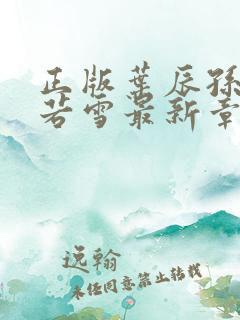 正版叶辰孙
若雪最新章
逸翰
未经同意禁止转载